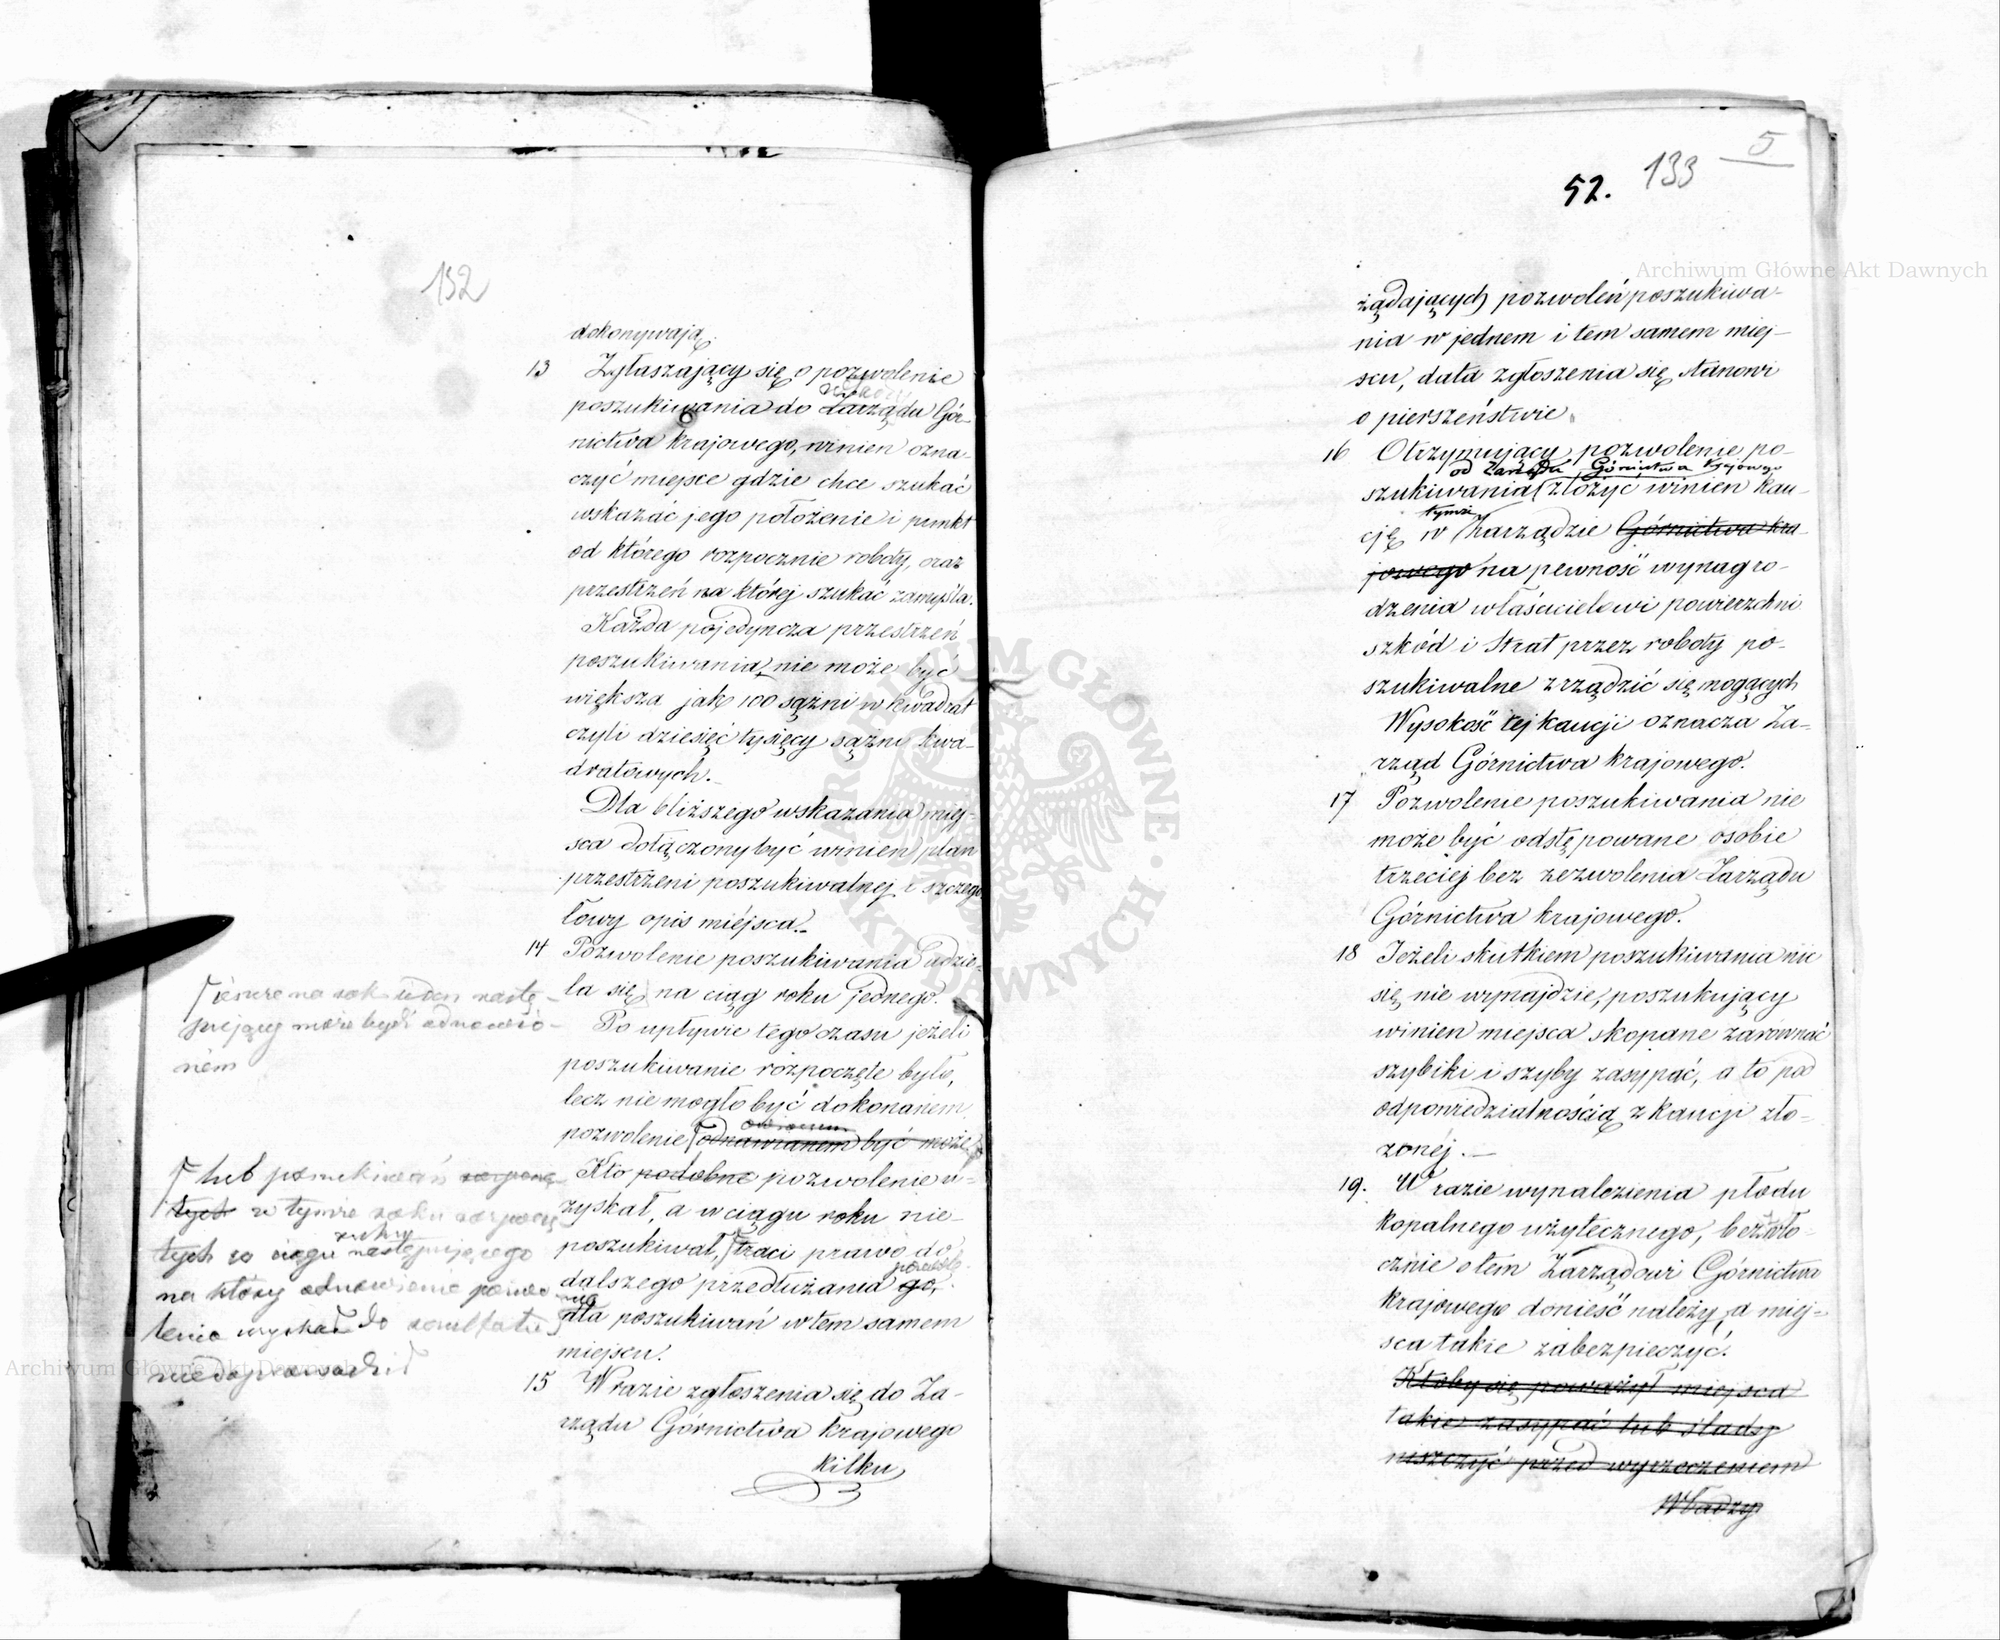 132
dokonywają.
13 Zgłaszający się o pozwolenie
poszukiwania do Zarządu Gór-
nictwa krajowego, winien ozna-
czyć miejsce gdzie chce szukać
wskazać jego położenie i punkt
od którego rozpocznie roboty, oraz
przestrzeń na której szukać zamyśla.
Każda pojedyncza przestrzeń
poszukiwania, nie może być
większa jak 100 sążni w kwadrat
czyli dziesięć tysięcy sążni kwa-
dratowych.
Dla bliższego wskazania miej-
sca dołączony być winien plan
przestrzeni poszukiwalnej i szczegó-
łowy opis miejsca.
14 Pozwolenie poszukiwania udzie-
la się na ciąg roku jednego.
Po upływie tego czasu jeżeli
poszukiwanie rozpoczęte było,
lecz nie mogło być dokonanem
pozwolenie odnawianem być może
Kto podobne pozwolenie u-
zyskał, a w ciągu roku nie-
poszukiwał, traci prawo do
dalszego przedłużania go,
dla poszukiwań w tem samem
miejscu.
15 W razie zgłoszenia się do Za-
rządu Górnictwa krajowego
kilku
jeszcze na rok jeden nastę-
pujący może być odnowio-
nem
lub poszukiwań
tych w tymże roku rozpoczę-
tych w ciągu następującego
na który odnowienie pozwo-
lenia uzyskał do rezultatu
niedoprowadził
5
52. 133
żądających pozwoleń poszukiwa-
nia w jednem i tem samem miej-
scu, data zgłoszenia się stanowi
o pierszeństwie.
16 Otrzymujący pozwolenie po-
od Zarządu Górnictwa krajowego
szukiwania złożyć winien kau-
tymże
cję w Zarządzie Górnictwa kra-
jowego na pewność wynagro-
dzenia właścicielowi powierzchni
szkód i strat przez roboty po-
szukiwalne zrządzić się mogących
Wysokość tej kaucji oznacza Za-
rząd Górnictwa krajowego.
17 Pozwolenie poszukiwania nie
może być odstępowane osobie
trzeciej bez zezwolenia Zarządu
Górnictwa krajowego.
18 Jeżeli skutkiem poszukiwania nic
się nie wynajdzie, poszukujący
winien miejsca skopane zarównać
szybiki i szyby zasypać, a to pod
odpowiedzialnością z kaucji zło-
zonéj.
19. W razie wynalezienia płodu
kopalnego użytecznego, bezzwło-
cznie o tem Zarządowi Górnictwa
krajowego donieść należy, a miej-
sca takie zabezpieczyć.
Ktoby się poważył miejsca
takie zasypać lub ślady
niszczyć przed wyrzeczeniem
Władzy
Archiwum Główne Akt Dawnych
Archiwum Główne Akt Dawnych
ARCHIWUM GŁÓWNE AKT DAWNYCH